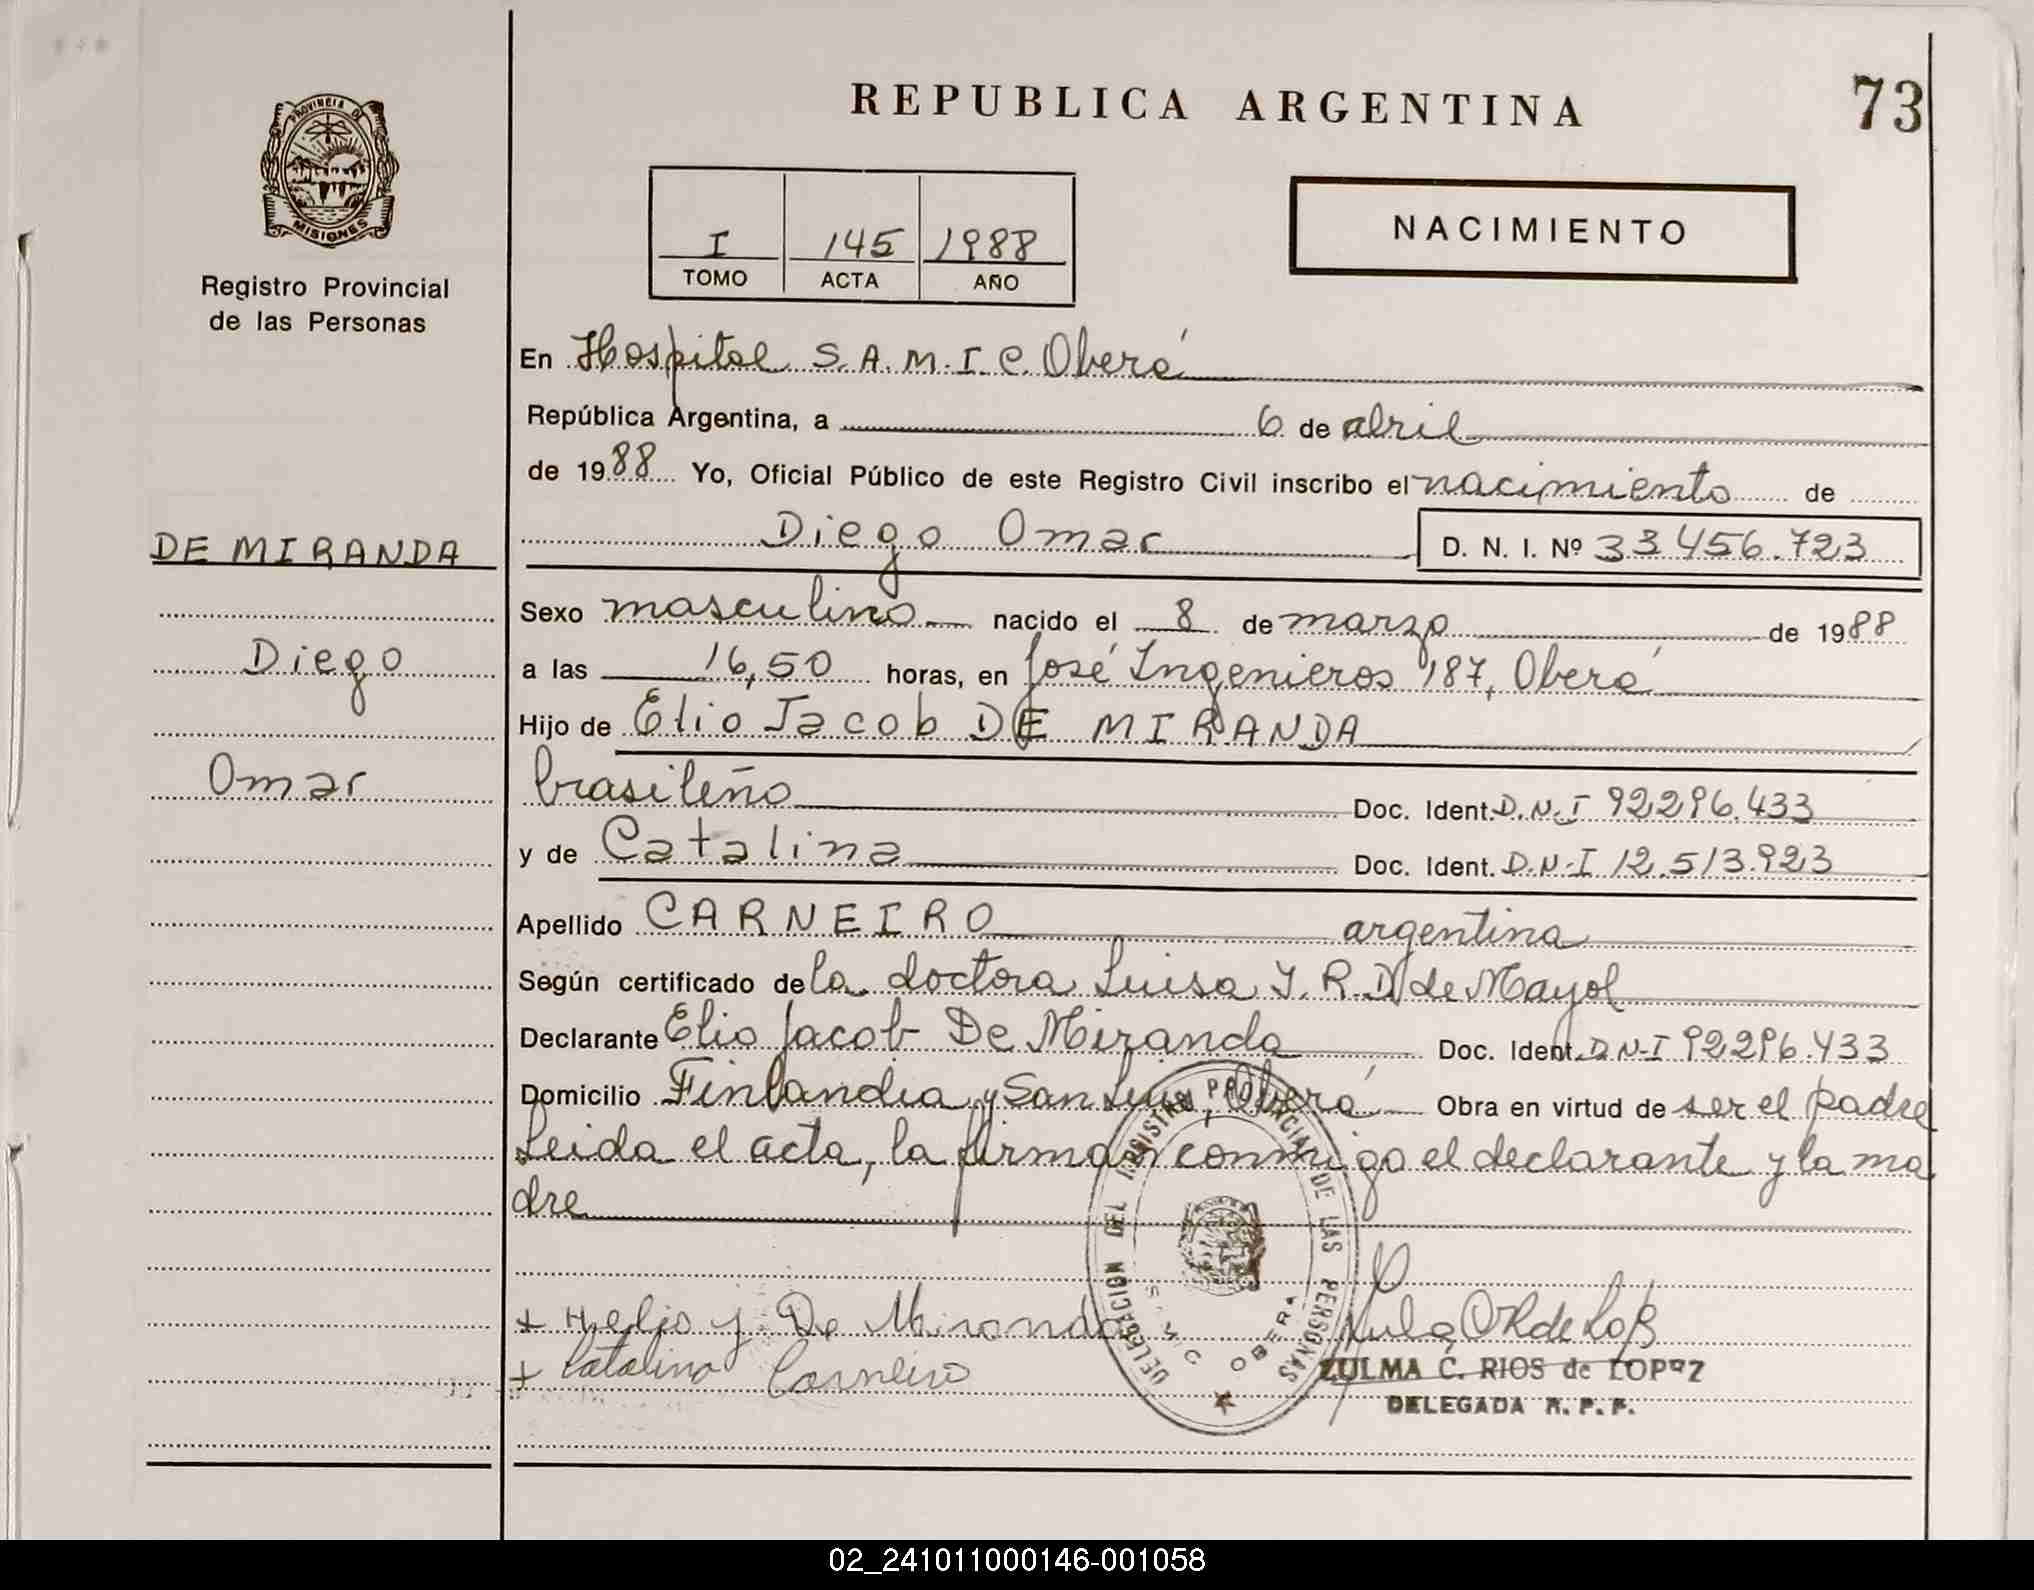 REPUBLICA ARGENTINA
73
PROVINCIA DE
MISIONES
Registro Provincial
de las Personas
I 145 1988
TOMO ACTA AÑO
NACIMIENTO
En Hospital S.A.M.I.C. Oberá
República Argentina, a 6 de abril
de 1988 Yo, Oficial Público de este Registro Civil inscribo el nacimiento de
Diego Omar D. N. I. Nº 33456.723
DE MIRANDA
Diego
Omar
Sexo masculino nacido el 8 de marzo de 1988
a las 16,50 horas, en José Ingenieros 187, Oberá
Hijo de Elio Jacob DE MIRANDA
brasileño Doc. Ident. D.N.I 92296.433
y de Catalina Doc. Ident. D.N.I 12.513.923
Apellido CARNEIRO argentina
Según certificado de la doctora Luisa Y. R. D. de Mayol
Declarante Elio Jacob De Miranda Doc. Ident. D.N.I 92296.433
Domicilio Finlandia y San Luis, Oberá Obra en virtud de ser el padre
Leida el acta, la firman conmigo el declarante y la ma
dre
DELEGACION DEL REGISTRO PROVINCIAL DE LAS PERSONAS
OBERA
+ Helio J. De Miranda
+ Catalina Carneiro
ZULMA C. RIOS de LOPEZ
DELEGADA R. P. P.
02_241011000146-001058